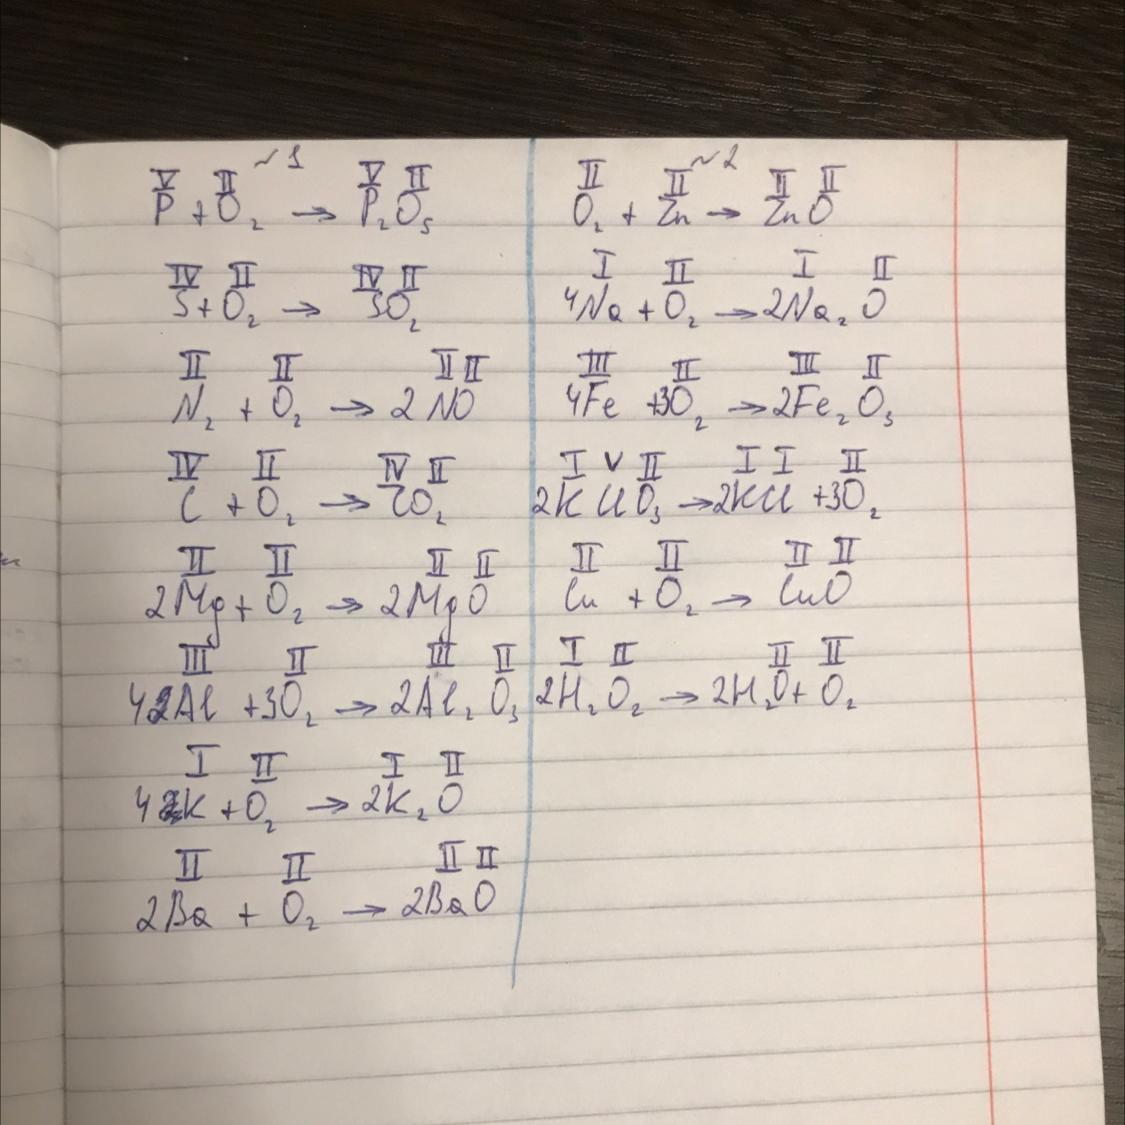 ~1
V II V II
P + O₂ → P₂O₅
IV II IV II
S + O₂ → SO₂
II II II II
N₂ + O₂ → 2NO
IV II IV II
C + O₂ → CO₂
II II II II
2Mg + O₂ → 2MgO
III II III II
4Al + 3O₂ → 2Al₂O₃
I II I II
4K + O₂ → 2K₂O
II II II II
2Ba + O₂ → 2BaO
~2
II II II II
O₂ + Zn → ZnO
I II I II
4Na + O₂ → 2Na₂O
III II III II
4Fe + 3O₂ → 2Fe₂O₃
I V II I I II
2KClO₃ → 2KCl + 3O₂
II II II II
Cu + O₂ → CuO
I II II II
2H₂O₂ → 2H₂O + O₂